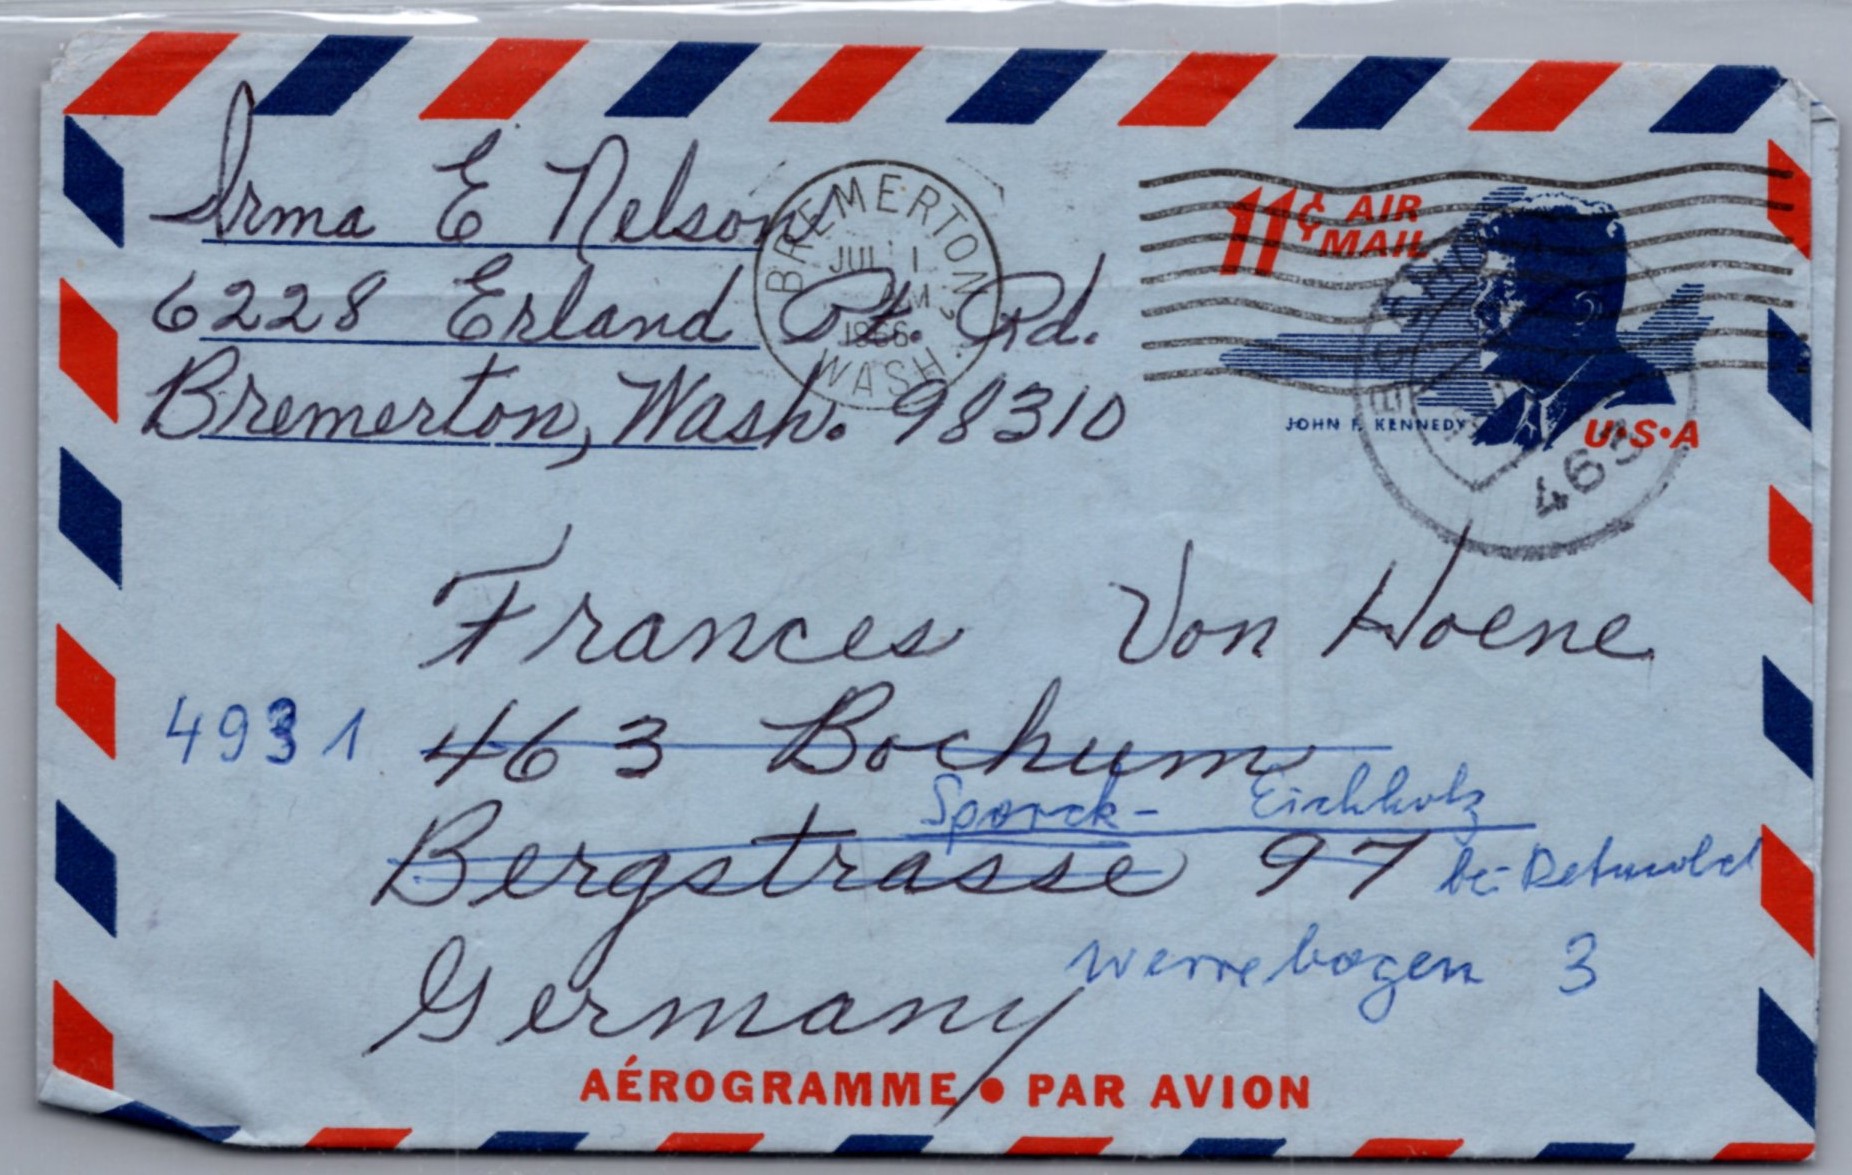 Irma E Nelson
6228 Erland Pt. Rd.
Bremerton, Wash. 98310
BREMERTON
JUL 1
1966
WASH.
11¢ AIR
MAIL
JOHN F. KENNEDY
U•S•A
463
Frances Von Hoene
4931 463 Bochum
Sporck- Eichholz
Bergstrasse 97 bei Detmold
Werrebogen 3
Germany
AÉROGRAMME • PAR AVION